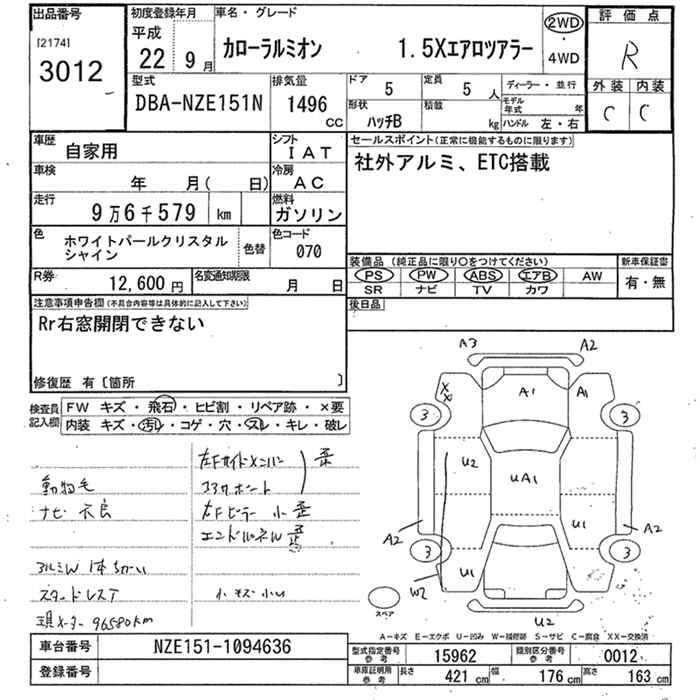 出品番号
[2174]
3012
初度登録年月
平成
22 9月
車名・グレード
カローラルミオン 1.5Xエアロツアラー
2WD
・
4WD
評価点
R
外装 内装
C C
型式
DBA-NZE151N
排気量
1496
CC
ドア
5
定員
5 人
形状
ハッチB
積載
kg
ディーラー・並行
モデル年式 年
ハンドル 左・右
車歴
自家用
シフト
IAT
車検
年 月( 日)
冷房
AC
走行
9万6千579 km
燃料
ガソリン
色
ホワイトパールクリスタルシャイン
色替
色コード
070
R券
12,600円
名変通知期限
月 日
セールスポイント(正常に機能するものに限ります)
社外アルミ、ETC搭載
装備品 (純正品に限り○をつけてください)
新車保証書
PS PW ABS エアB AW
SR ナビ TV カワ
有・無
後日品
注意事項申告欄(不具合内容等は具体的に記入して下さい)
Rr右窓開閉できない
修復歴 有〔箇所 〕
検査員記入欄
FW キズ・飛石・ヒビ割・リペア跡・×要
内装 キズ・汚レ・コゲ・穴・スレ・キレ・破レ
動物毛
ナビ不良
アルミW 1本ちがい
スタッドレス7
現メーター 96580km
左Fサイドメンバー 歪
コアサポート
左Fピラー 小歪
エンドパネル 歪
小キズ小凹
A3 A2
XX A1 A1
3 3
U2 UA1 U1
A2 A2
3 3
U1
W2
U2
スペア
A-キズ E-エクボ U-凹み W-補修跡 S-サビ C-腐食 XX-交換済
車台番号
NZE151-1094636
登録番号
型式指定番号
参考
15962
類別区分番号
参考
0012
車庫証明用
参考
長さ 421 cm 幅 176 cm 高さ 163 cm